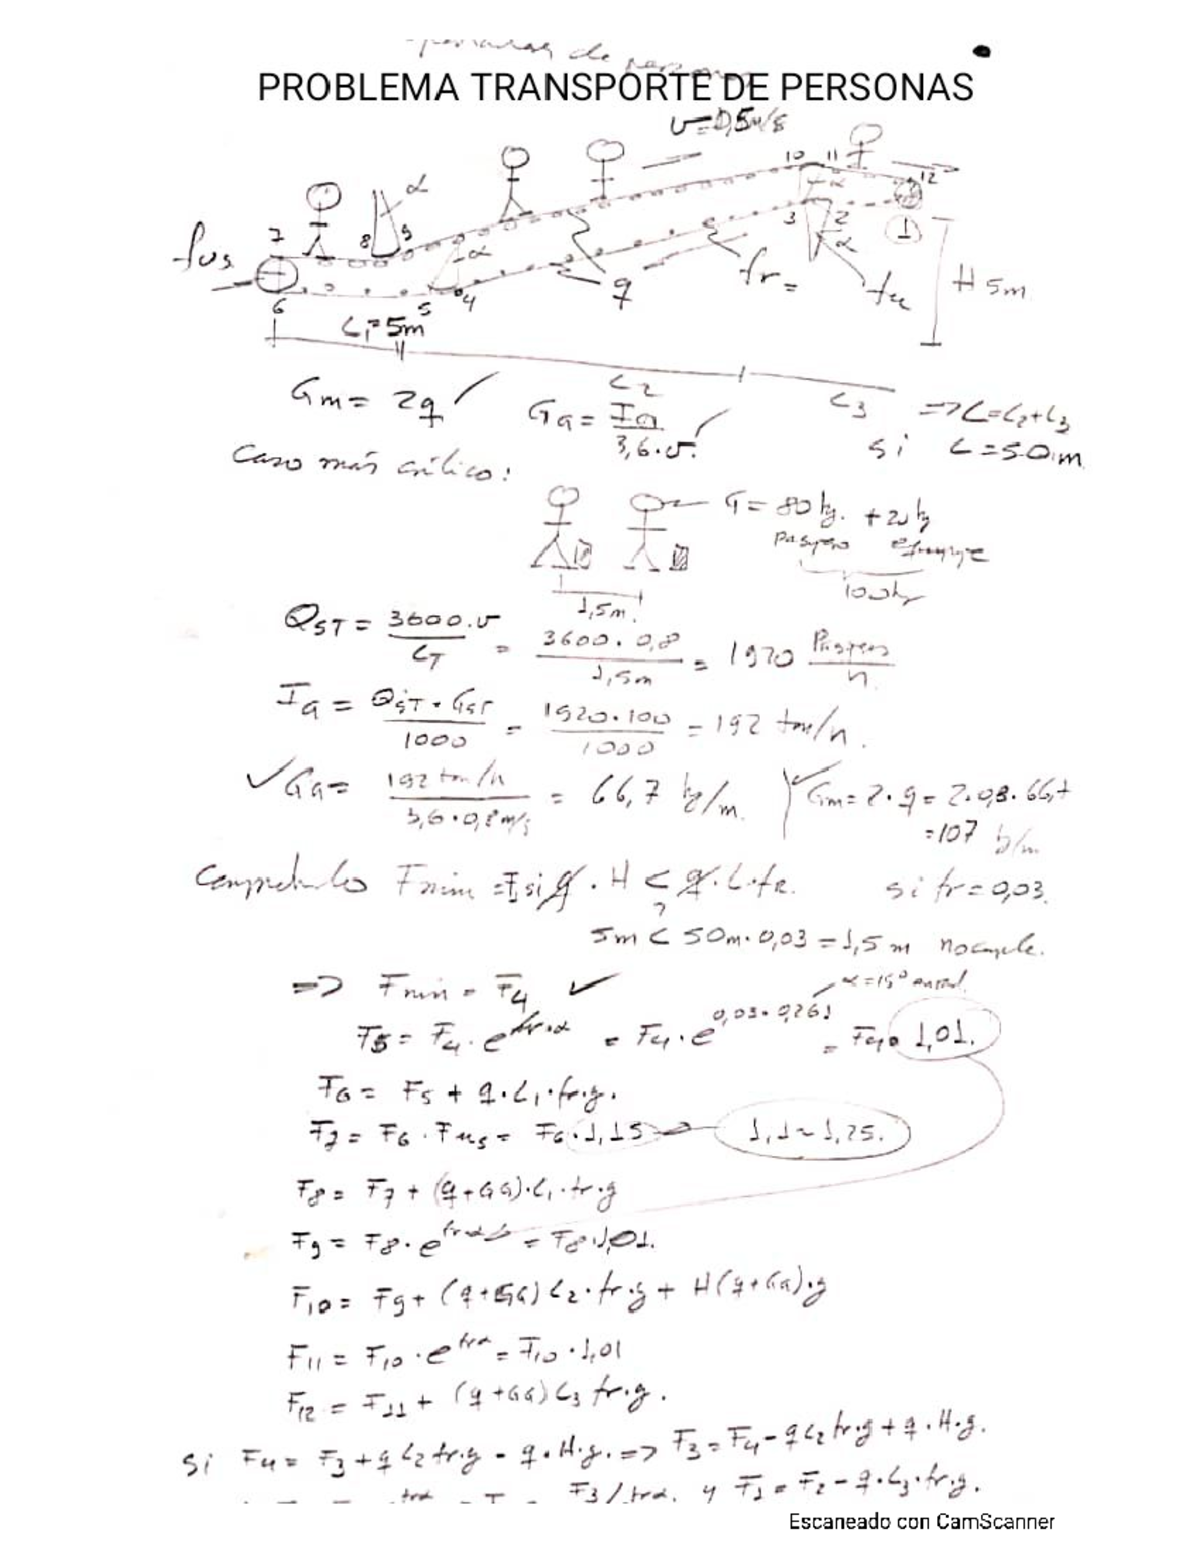 de
PROBLEMA TRANSPORTE DE PERSONAS
v=0,5m/s
10 11
12
α
α
7
8 9
α
3 2
1
fus
α
q
fr=
fu
H 5m.
6
5 4
L₁=5m
L₂
L₃ => L=L₂+L₃
Gm = 2q
Ga = Ia / 3,6.v.
si L=50m
Caso más crítico:
G = 80kg. + 20kg
pasajero equipaje
100kg
1,5m.
QST = 3600.v / LT = 3600.0,8 / 1,5m = 1920 Pasajeros / h.
Ia = QST.GST / 1000 = 1920.100 / 1000 = 192 ton/h.
Ga = 192 ton/h / 3,6.0,8m/s = 66,7 kg/m.
Gm = 2.q = 2.0,8.66,7
=107 kg/m
Comprobando Fmin = F₃ si q.H < q.L.fr. si fr=0,03.
?
5m < 50m.0,03 = 1,5 m no cumple.
=> Fmin = F₄
α=15°
F5 = F₄.e^fr.α = F₄.e^0,03.0,261 = F₄.1,01.
F6 = F5 + q.L₁.fr.g.
F7 = F6.Fus = F6.1,15 1,1~1,25.
F8 = F7 + (q+Ga).L₁.fr.g
F9 = F8.e^frα = F8.1,01.
F10 = F9 + (q+Ga)L₂.fr.g + H(q+Ga).g
F11 = F10.e^frα = F10.1,01
F12 = F11 + (q+Ga)L₃ fr.g.
si F4 = F3+q L₂ fr.g - q.H.g. => F3 = F4 - qL₂ fr.g + q.H.g.
F3/frα. y F1 = F2 - q.L₃.fr.g.
Escaneado con CamScanner